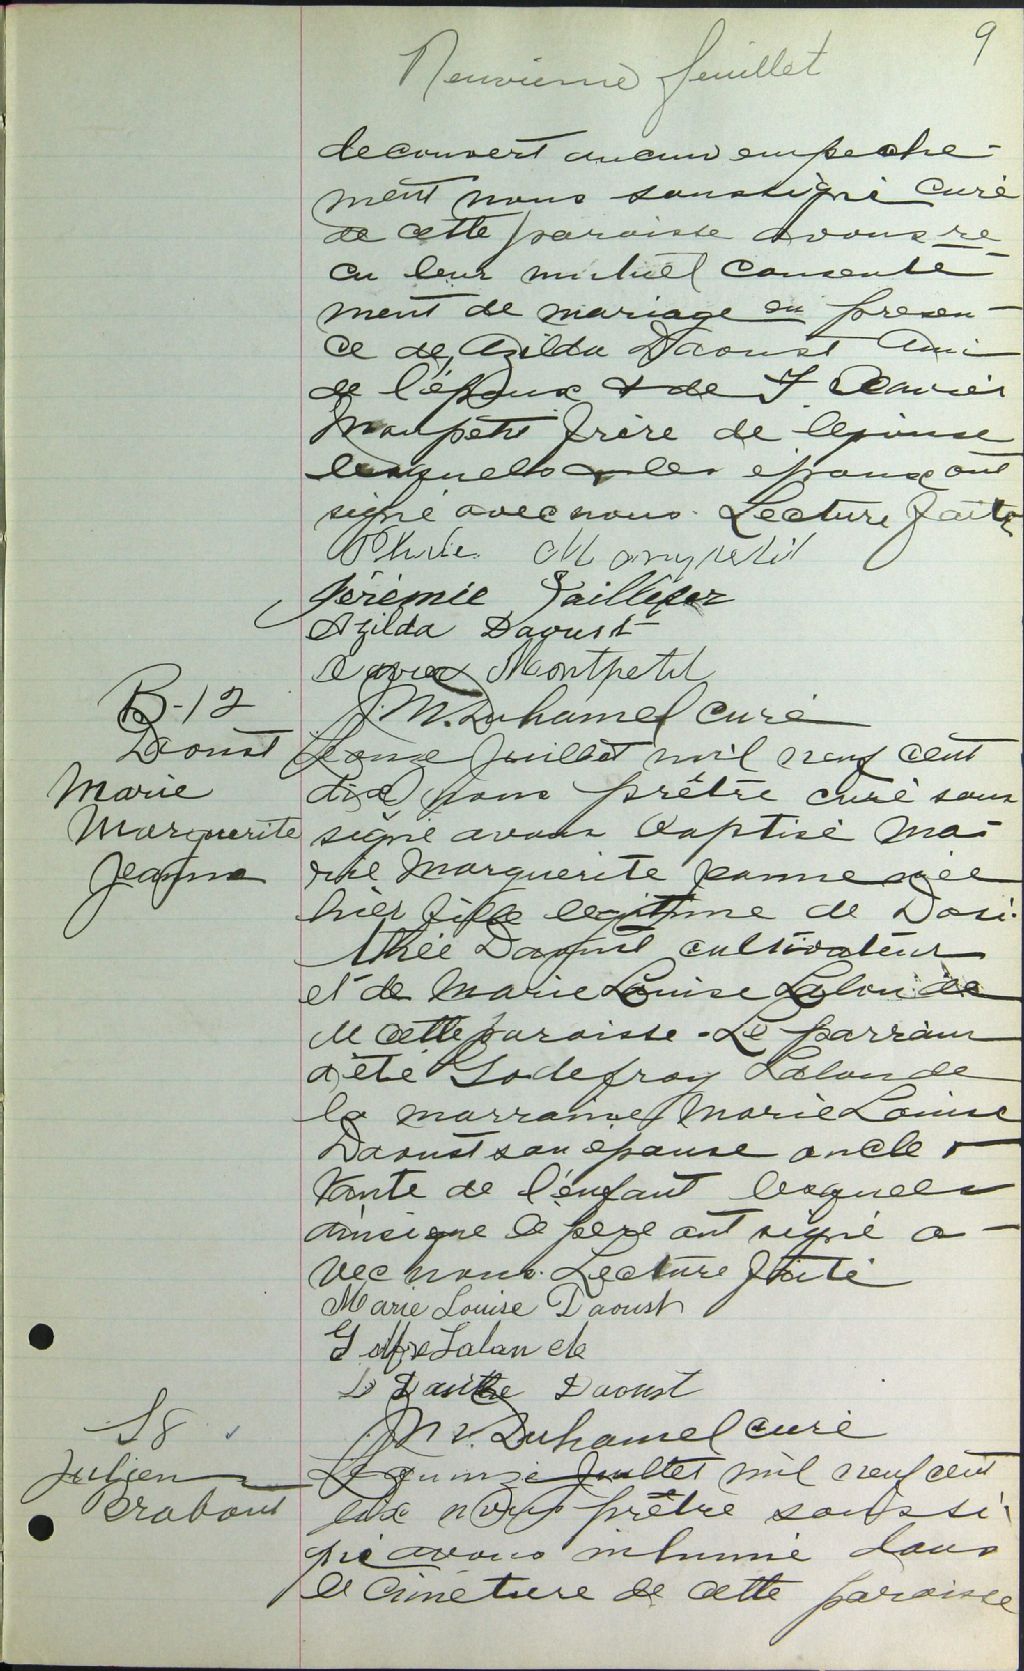 9
Neuvieme feuillet
decouvert aucun empeche-
ment nous soussigné curé
de cette paroisse avons re
cu leur mutuel consente-
ment de mariage en presen-
ce de Azilda Daoust Ami
de l'époux & de F. Xavier
Montpetit frère de l'épouse
lesquels & les époux ont
signé avec nous. Lecture faite
Montpetit
Jérémie Taillefer
Azilda Daoust
Xavier Montpetit
J. M. Duhamel curé
B-12
Daoust
Marie
Marguerite
Jeanne
Le onze Juillet mil neuf cent
dix nous prêtre curé sous
signé avons baptisé Ma-
rie Marguerite Jeanne née
hier fille legitime de Dosi-
thée Daoust cultivateur
et de Marie Louise Lalonde
de cette paroisse. Le parrain
a été Godefroy Lalonde
la marraine Marie Louise
Daoust son épouse oncle &
tante de l'enfant lesquels
ainsi que le pere ont signé a-
vec nous. Lecture faite
Marie Louise Daoust
Lalande
Daoust
J. M. Duhamel curé
S8
Julien
Brabant
Le quinze Juillet mil neuf cent
dix nous prêtre soussi-
gné avons inhumé dans
le cimetiere de cette paroisse